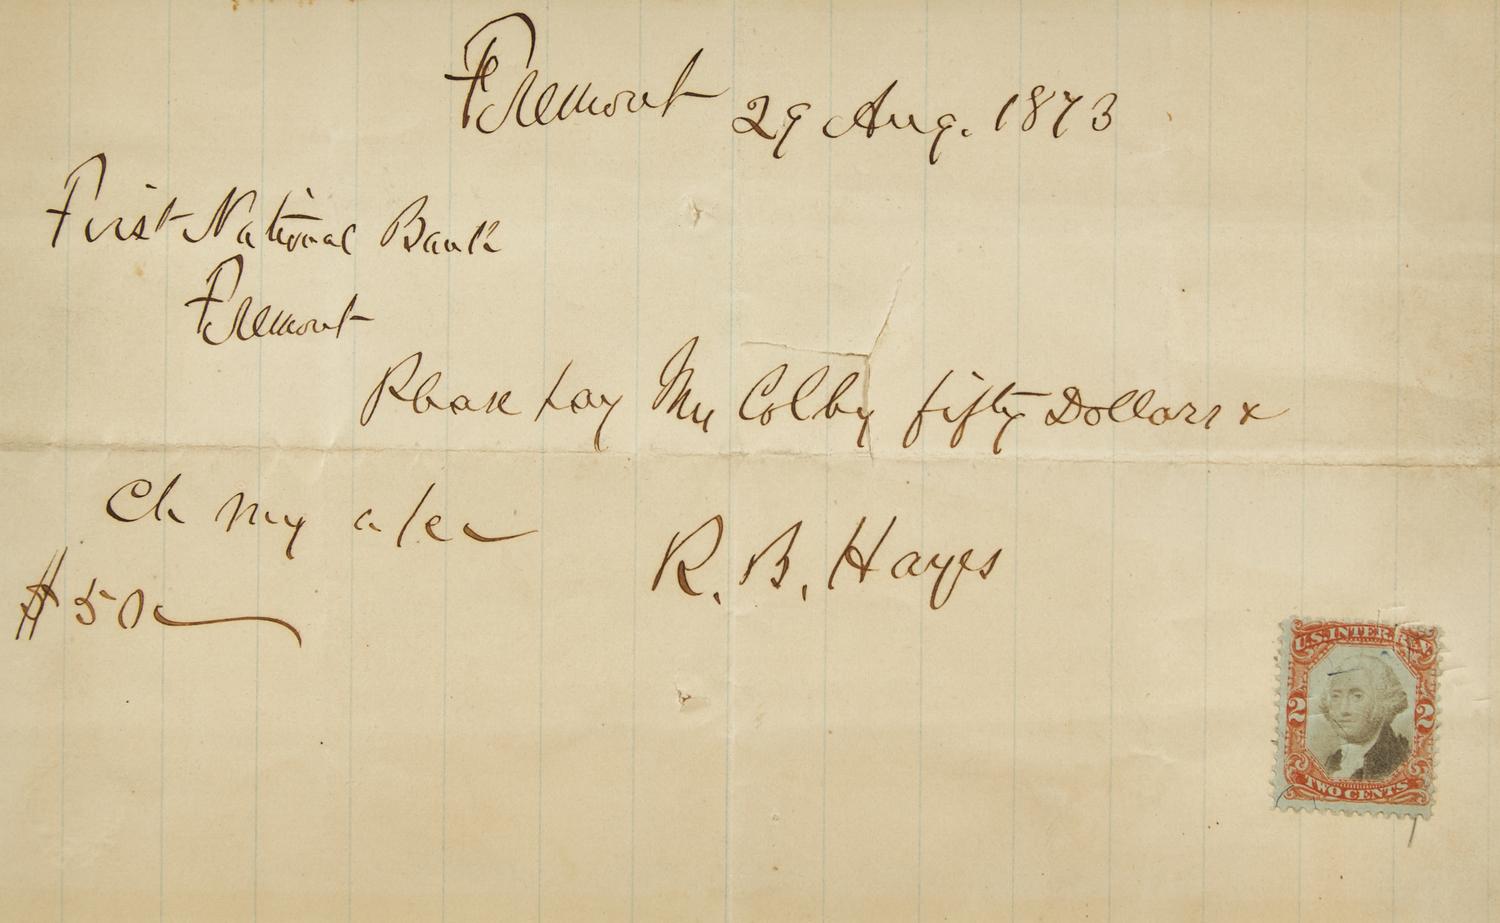 Fremont 29 Aug. 1873
First National Bank
Fremont
Please pay Mr Colby fifty Dollars x
Ch my a/cc
R. B. Hayes
$50
U.S. INTER. REV.
2 2
TWO CENTS